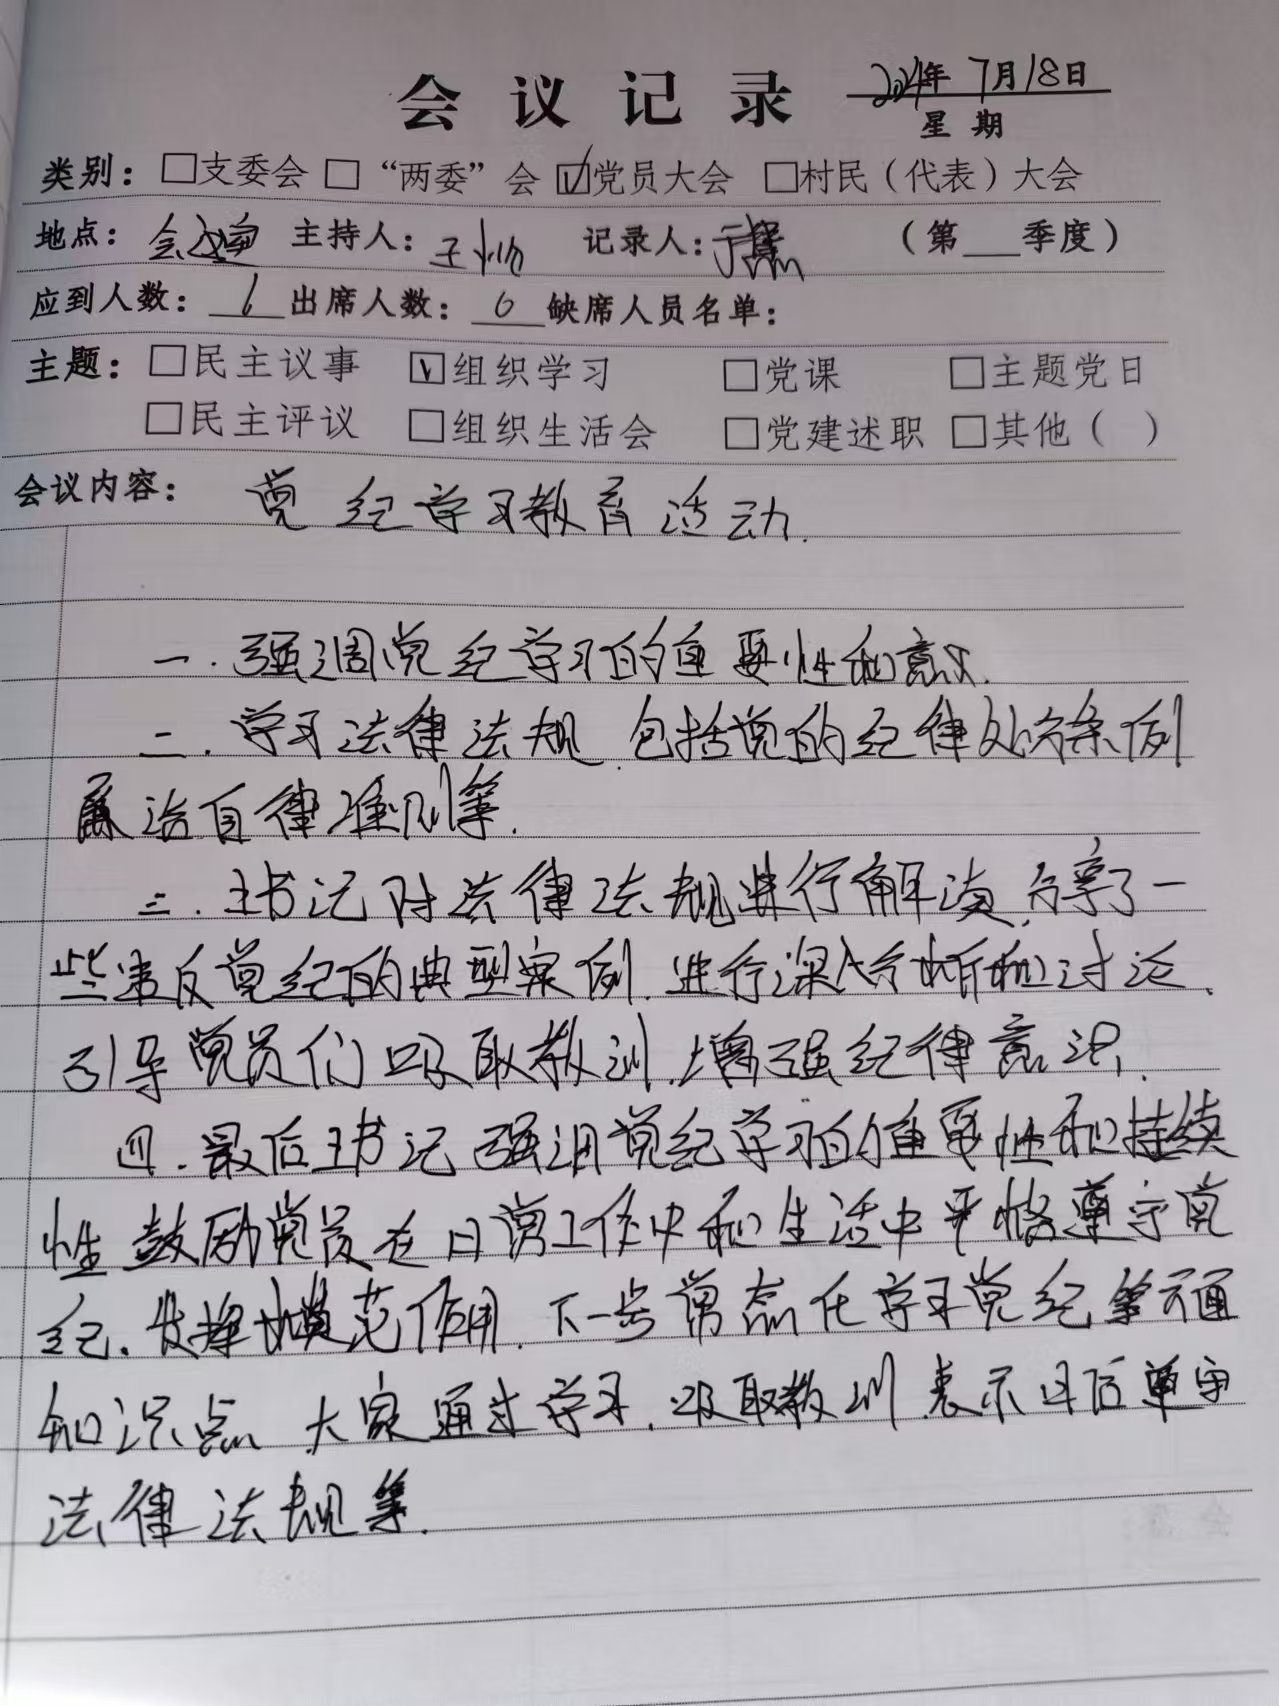 会议记录 2024年7月18日
星期
类别：□支委会 □“两委”会 ☑党员大会 □村民（代表）大会
地点：会议室 主持人：王 记录人：于 （第___季度）
应到人数：6 出席人数：6 缺席人员名单：
主题：□民主议事 ☑组织学习 □党课 □主题党日
□民主评议 □组织生活会 □党建述职 □其他（ ）
会议内容： 党纪学习教育活动.
一.强调党纪学习的重要性和意义.
二.学习法律法规.包括党的纪律处分条例
廉洁自律准则等.
三.王书记对法律法规进行解读,分享了一
些违反党纪的典型案例.进行深入分析和讨论、
引导党员们吸取教训.增强纪律意识.
四.最后王书记强调党纪学习的重要性和持续
性鼓励党员在日常工作中和生活中严格遵守党
纪、发挥模范作用.下一步常态化学习党纪等方面
知识点 大家通过学习.吸取教训.表示日后遵守
法律法规等.